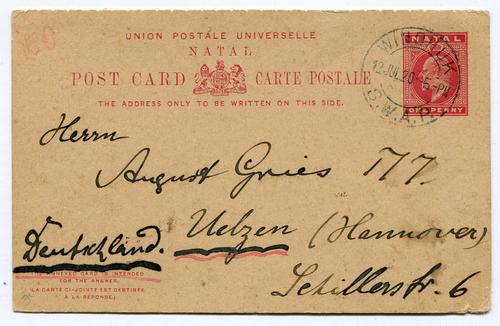 150
UNION POSTALE UNIVERSELLE
NATAL
POST CARD CARTE POSTALE
THE ADDRESS ONLY TO BE WRITTEN ON THIS SIDE.
NATAL
ONE PENNY
WINDHUK
12 JUL 20 5-PM
S.W.A.
Herrn
August Gries 177.
Uelzen (Hannover)
Deutschland.
Schillerstr. 6
THE ANNEXED CARD IS INTENDED
FOR THE ANSWER.
(LA CARTE CI-JOINTE EST DESTINÉE
À LA RÉPONSE.)